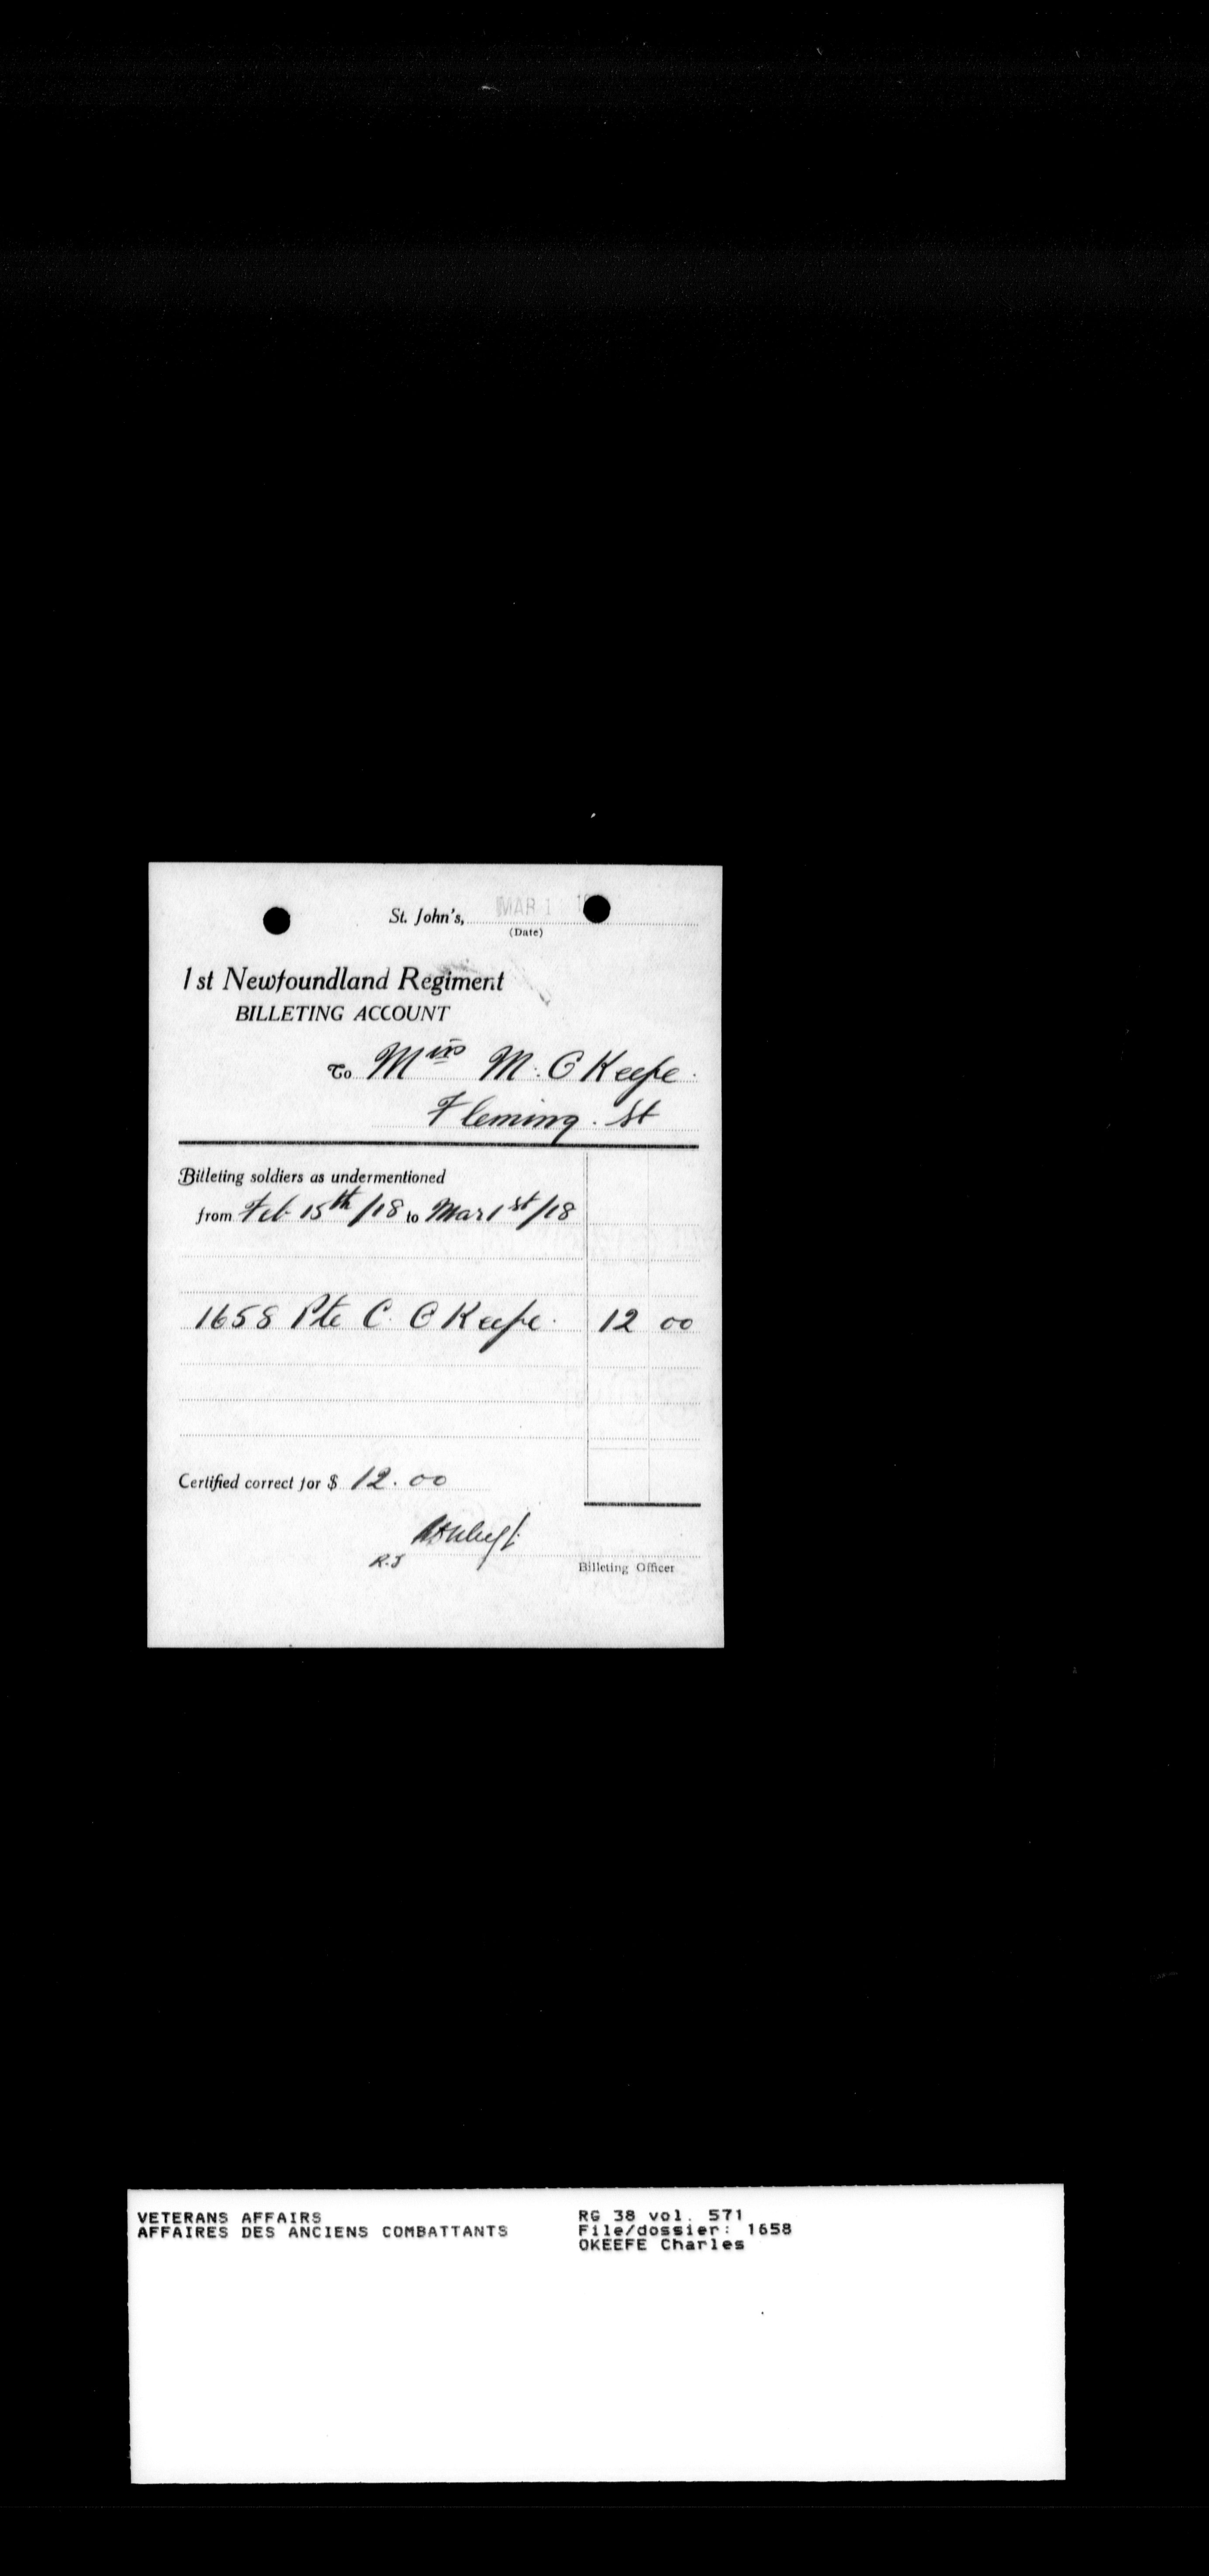 St. John's, MAR 1
(Date)
1st Newfoundland Regiment
BILLETING ACCOUNT
To Mrs M. O Keefe.
Fleming. St
Billeting soldiers as undermentioned
from Feb 15th/18 to Mar 1st/18
1658 Pte C. O Keefe. 12 00
Certified correct for $ 12.00
R.J
Billeting Officer
VETERANS AFFAIRS RG 38 vol. 571
AFFAIRES DES ANCIENS COMBATTANTS File/dossier: 1658
OKEEFE Charles